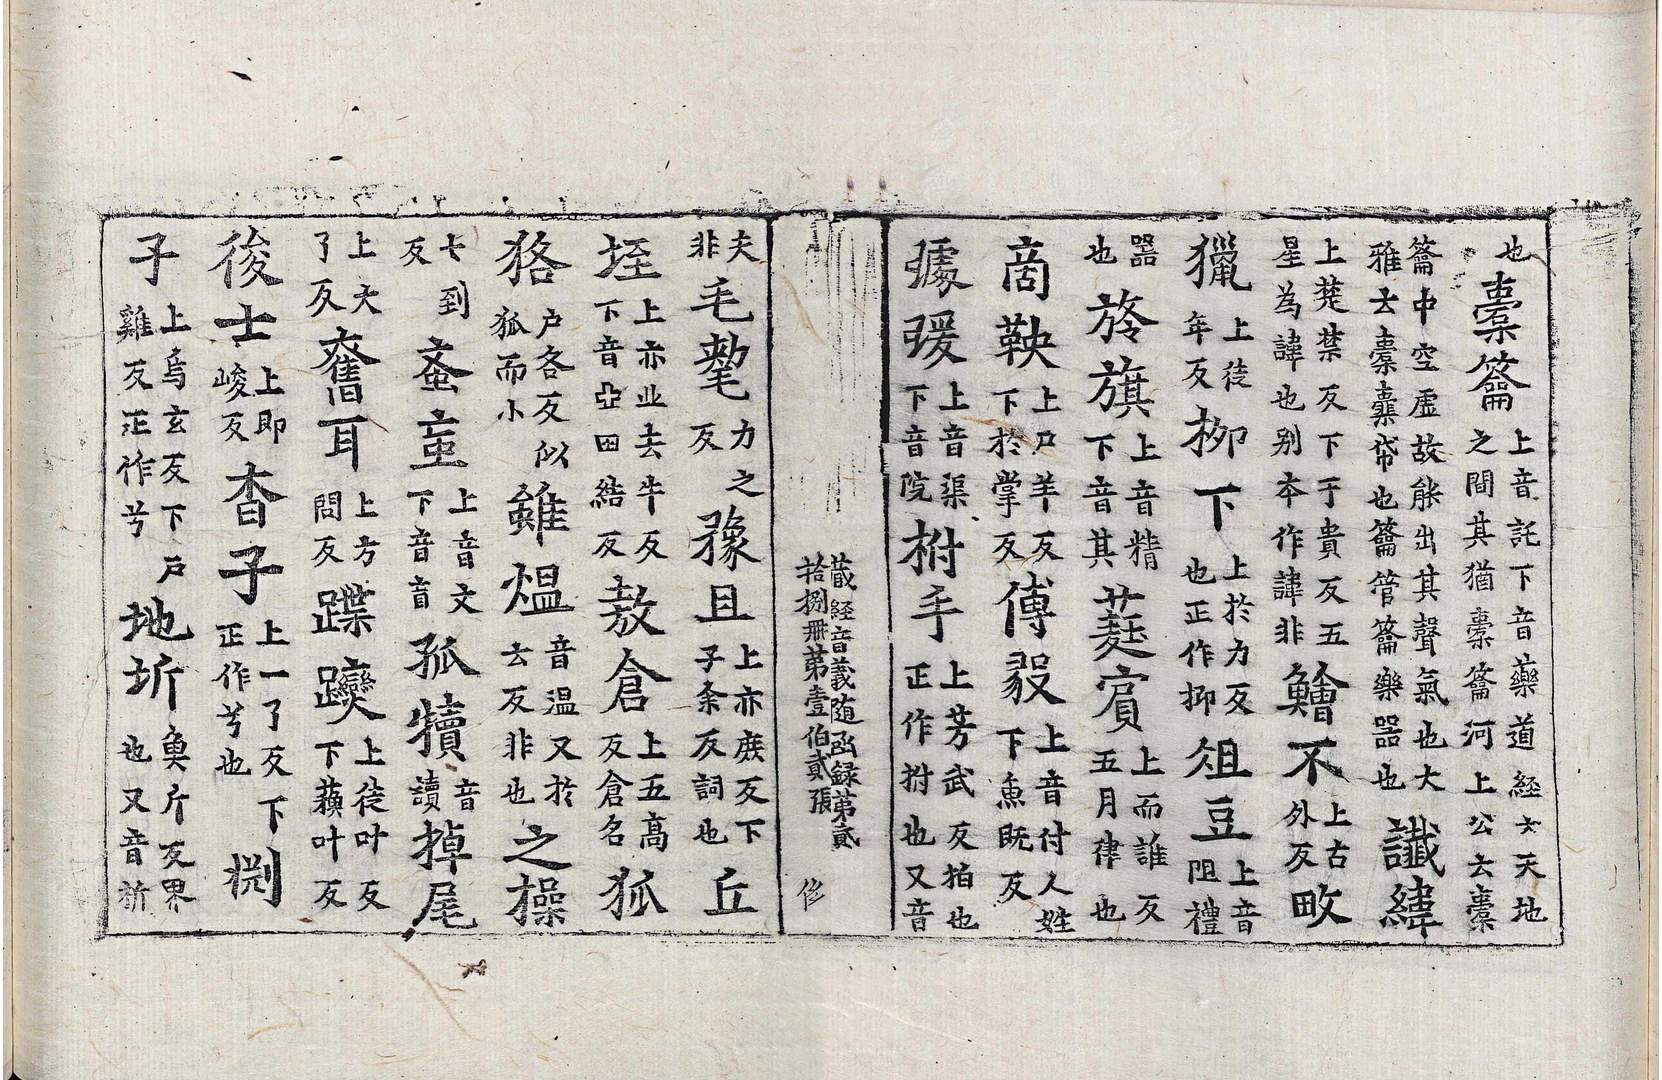 也橐籥上音託下音藥道經云天地之間其猶橐籥河上公云橐
籥中空虛故能出其聲氣也大雅云橐囊帒也籥管籥樂器也讖緯
上楚禁反下于貴反五星為諱也別夲作諱非鱠不上古外反畋
獵上徒年反栁下上於力反也正作抑俎豆上音阻禮
器也旍旗上音精下音其蕤賔上而誰反五月律也
啇鞅上尸羊反下於掌反傅毅上音付人姓下魚既反
璩瑗上音渠下音院柎手上芳武反拍也正作拊也又音
藏經音義隨函録第貳
拾捌冊第壹伯貳張
夫非毛氂力之反豫且上亦庶反下子余反詞也丘
垤上亦业去牛反下音亞田結反敖倉上五高反倉名狐
狢户各反似狐而小雖熅音温又於云反非也之操
七到反蚉䖟上音文下音盲孤犢音讀掉尾
上大了反奮耳上方問反蹀躞上徒叶反下蘓叶反
後士上即峻反杳子上一了反下正作兮也捌
子上烏玄反下户雞反正作兮地圻奐斤反界也又音祈